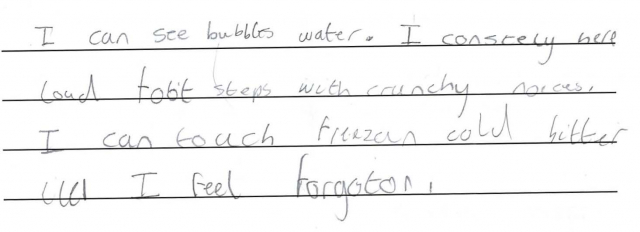 I can see bubbles water. I constely here
loud fobt steps with crunchy noices.
I can touch friezan cold bitter
I feel forgoton.